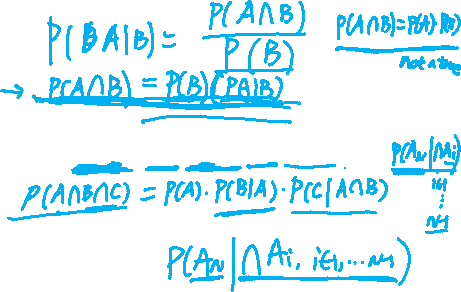 P(A|B) = P(A∩B) / P(B)
P(A∩B) = P(A) P(B)
not always
→ P(A∩B) = P(B)(PA|B)
P(A∩B∩C) = P(A)·P(B|A)·P(C|A∩B)
P(An|∩Ai)
i=1
⋮
n-1
P(An|∩Ai, i=1,...n-1)